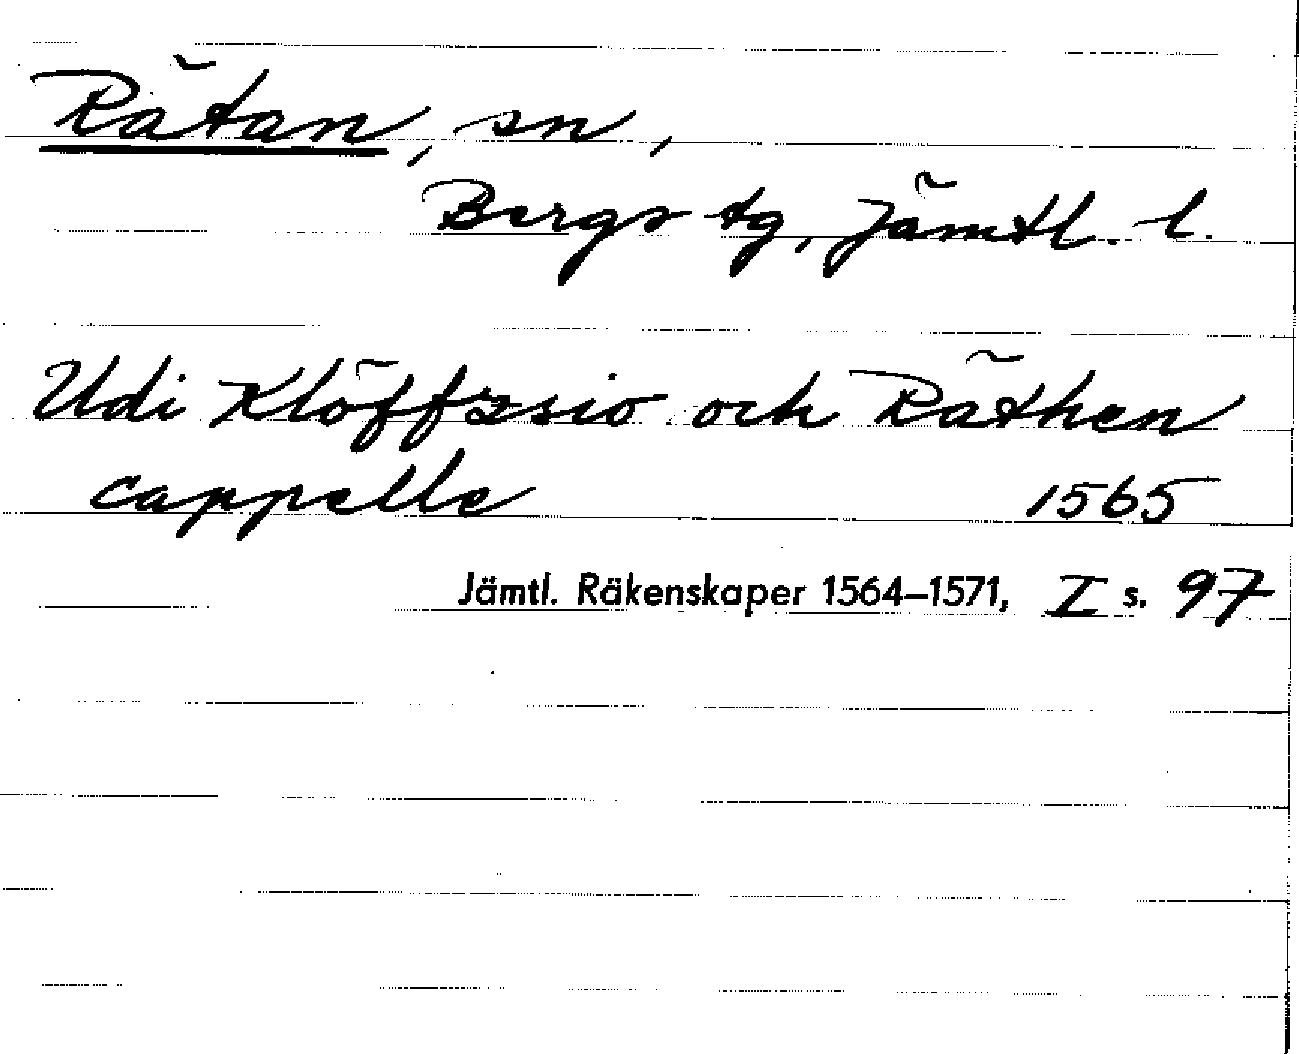 Rätan, sn,
Bergs tg, Jämtl. l.
Udi Klöffzsiö och Räthen
cappelle 1565
Jämtl. Räkenskaper 1564–1571, I s. 97